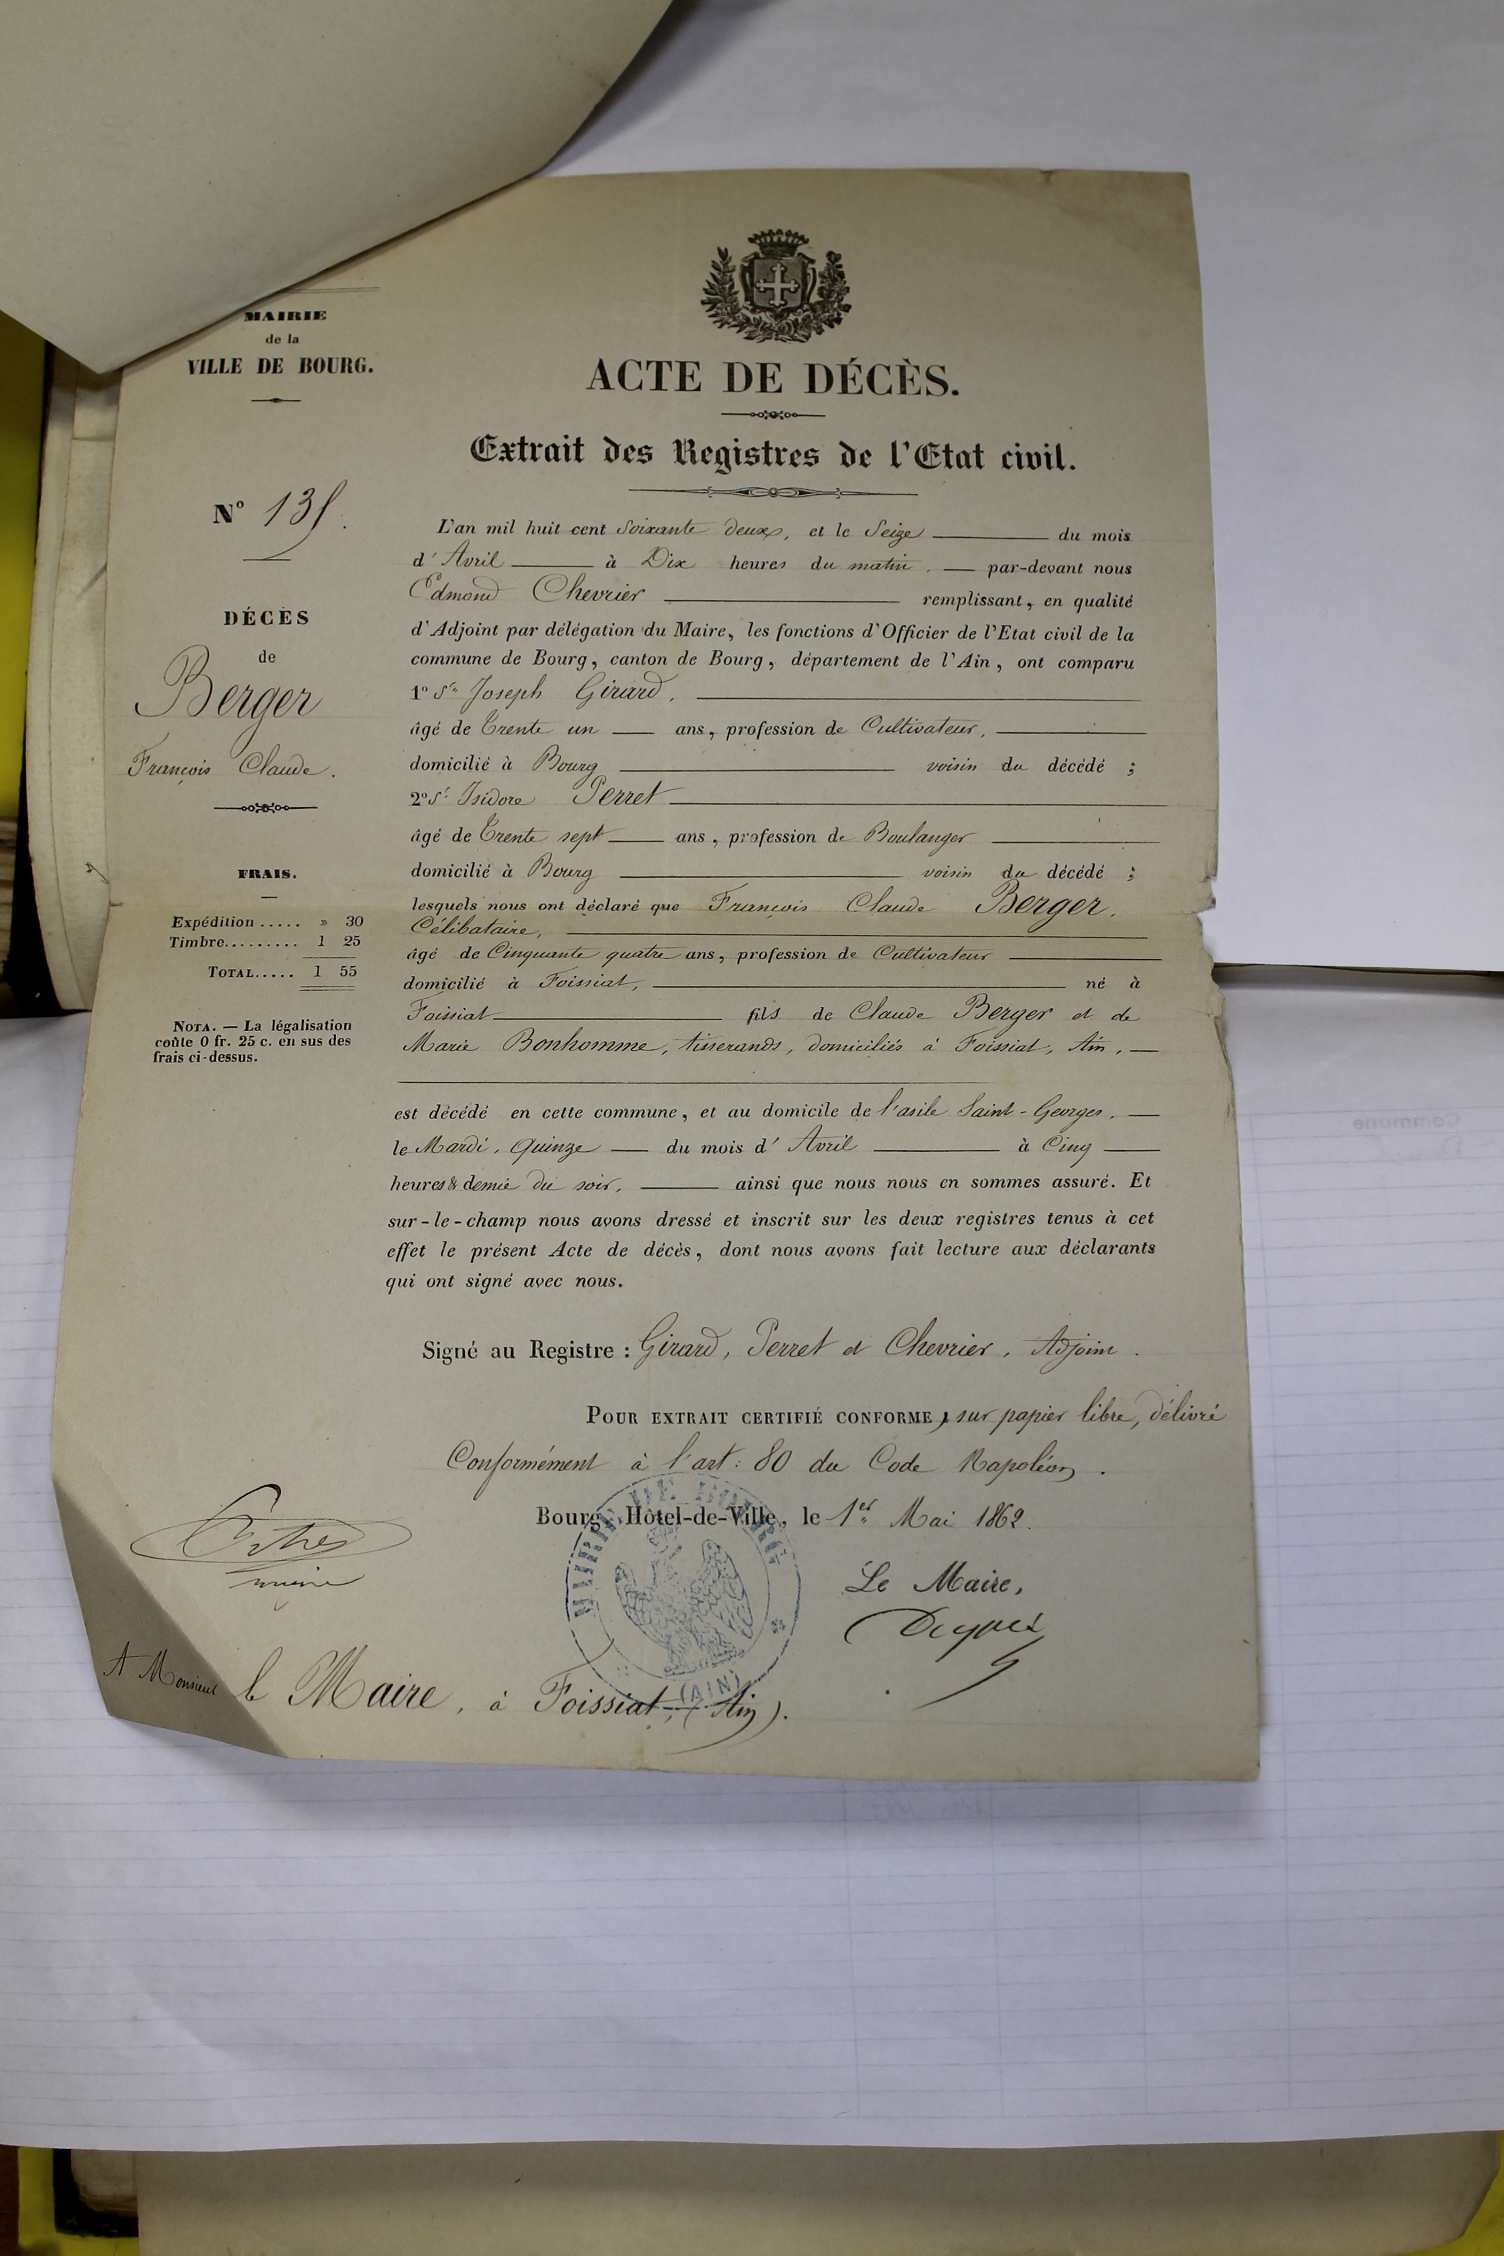 MAIRIE
de la
VILLE DE BOURG.
N° 135.
DÉCÈS
de
Berger
François Claude.
FRAIS.
Expédition ..... » 30
Timbre......... 1 25
TOTAL..... 1 55
NOTA. — La légalisation
coûte 0 fr. 25 c. en sus des
frais ci-dessus.
ACTE DE DÉCÈS.
Extrait des Registres de l'Etat civil.
L'an mil huit cent soixante deux, et le Seize du mois
d'Avril à Dix heures du matin. par-devant nous
Edmond Chevrier remplissant, en qualité
d'Adjoint par délégation du Maire, les fonctions d'Officier de l'Etat civil de la
commune de Bourg, canton de Bourg, département de l'Ain, ont comparu
1° Sr Joseph Girard,
âgé de Trente un ans, profession de Cultivateur,
domicilié à Bourg voisin du décédé ;
2° Sr Isidore Perret
âgé de Trente sept ans, profession de Boulanger
domicilié à Bourg voisin du décédé ;
lesquels nous ont déclaré que François Claude Berger,
Célibataire,
âgé de Cinquante quatre ans, profession de Cultivateur
domicilié à Foissiat, né à
Foissiat fils de Claude Berger et de
Marie Bonhomme, tisserands, domiciliés à Foissiat, Ain,
est décédé en cette commune, et au domicile de l'asile Saint-Georges,
le Mardi, Quinze du mois d'Avril à Cinq
heures & demie du soir, ainsi que nous nous en sommes assuré. Et
sur-le-champ nous avons dressé et inscrit sur les deux registres tenus à cet
effet le présent Acte de décès, dont nous avons fait lecture aux déclarants
qui ont signé avec nous.
Signé au Registre : Girard, Perret et Chevrier, Adjoint.
POUR EXTRAIT CERTIFIÉ CONFORME, sur papier libre, délivré
Conformément à l'art: 80 du Code Napoléon.
Bourg, Hôtel-de-Ville, le 1er Mai 1862.
MAIRIE DE BOURG
(AIN)
Le Maire,
A Monsieur le Maire, à Foissiat, (Ain).
Commune